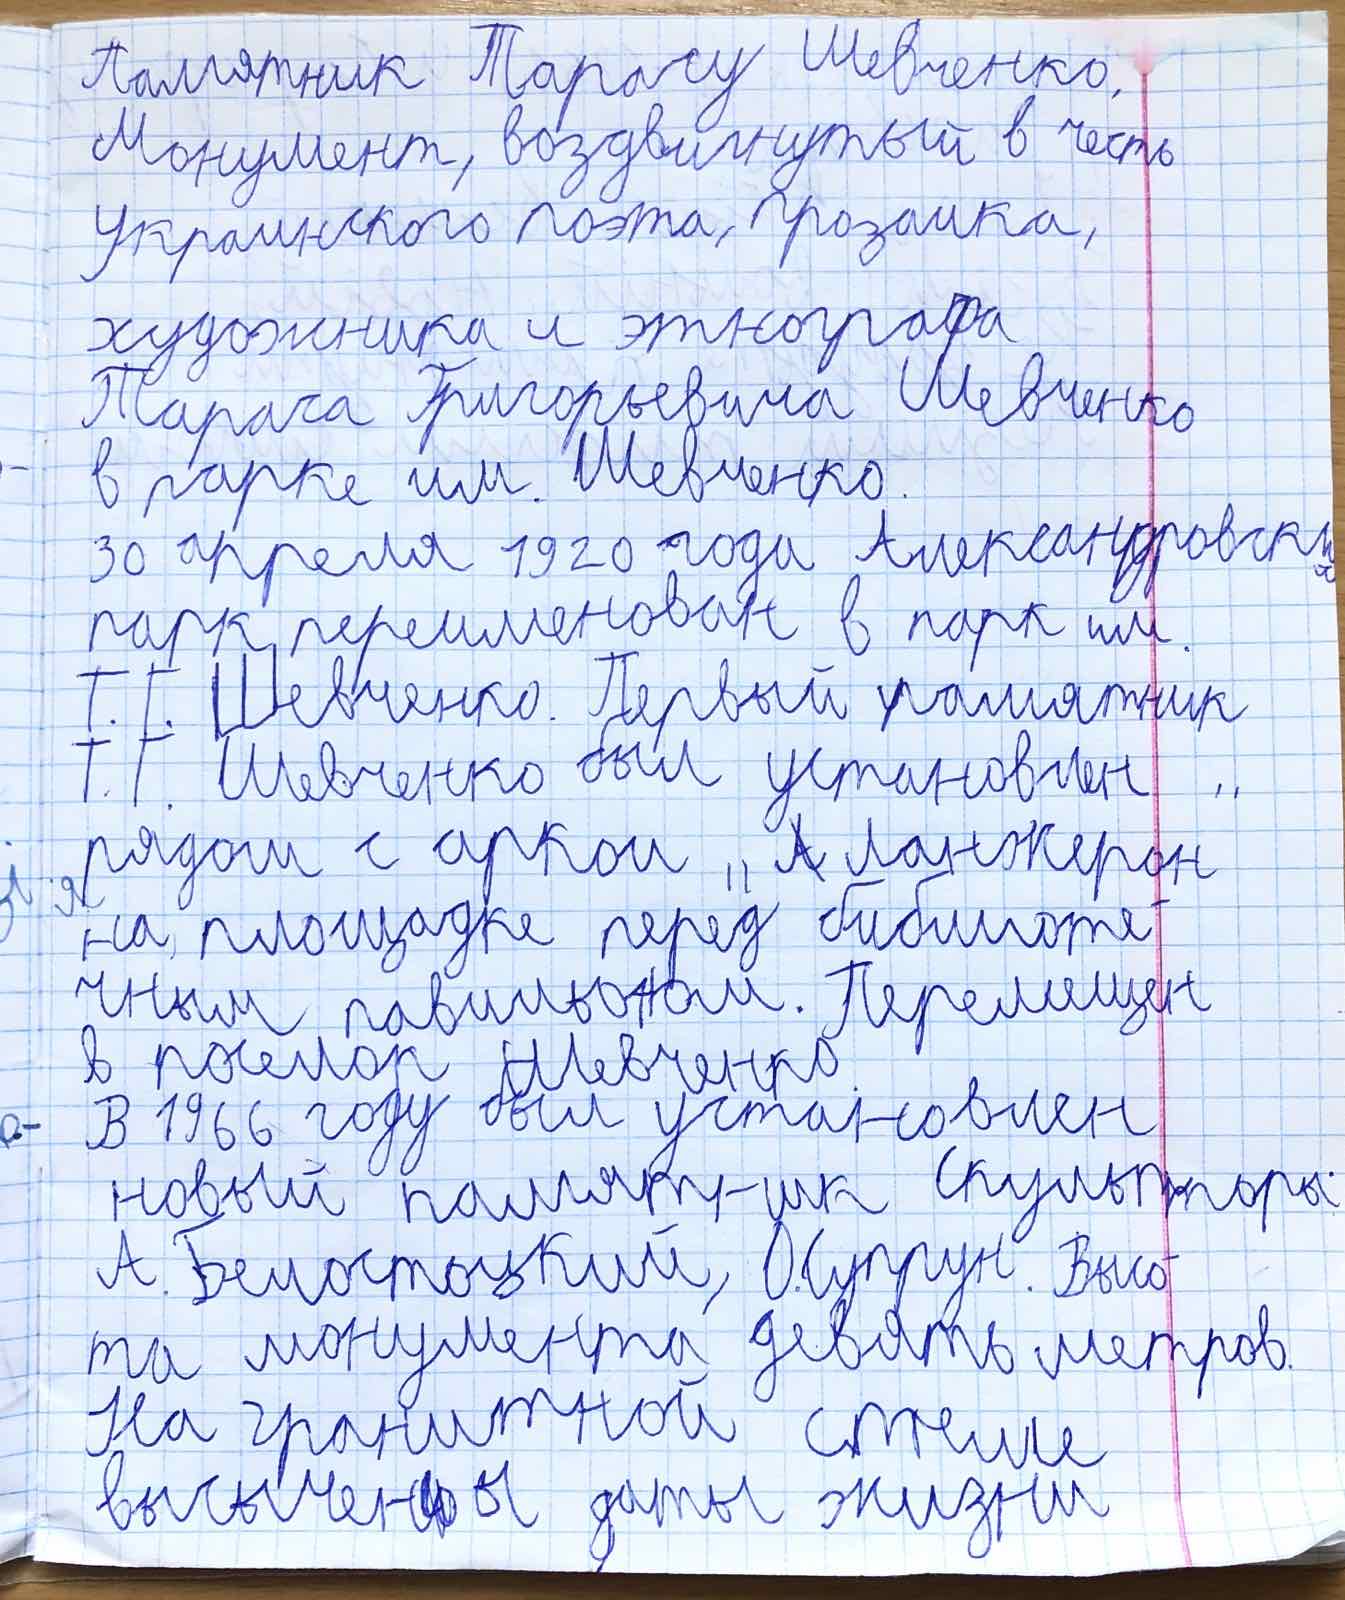 Памятник Тарасу Шевченко,
Монумент, воздвигнутый в честь
Украинского поэта, прозаика,
художника и этнографа
Тараса Григорьевича Шевченко
в парке им. Шевченко.
30 апреля 1920 года Александровский
парк переименован в парк им.
Т.Г. Шевченко. Первый памятник
Т.Г. Шевченко был установлен
рядом с аркой „Ланжерон"
на площадке перед библиоте-
чным павильоном. Перемещен
в поселок Шевченко.
В 1966 году был установлен
новый памятник Скульпторы:
А. Белостоцкий, О.Супрун. Высо-
та монумента девять метров.
На гранитной стелле
высыченны даты жизни